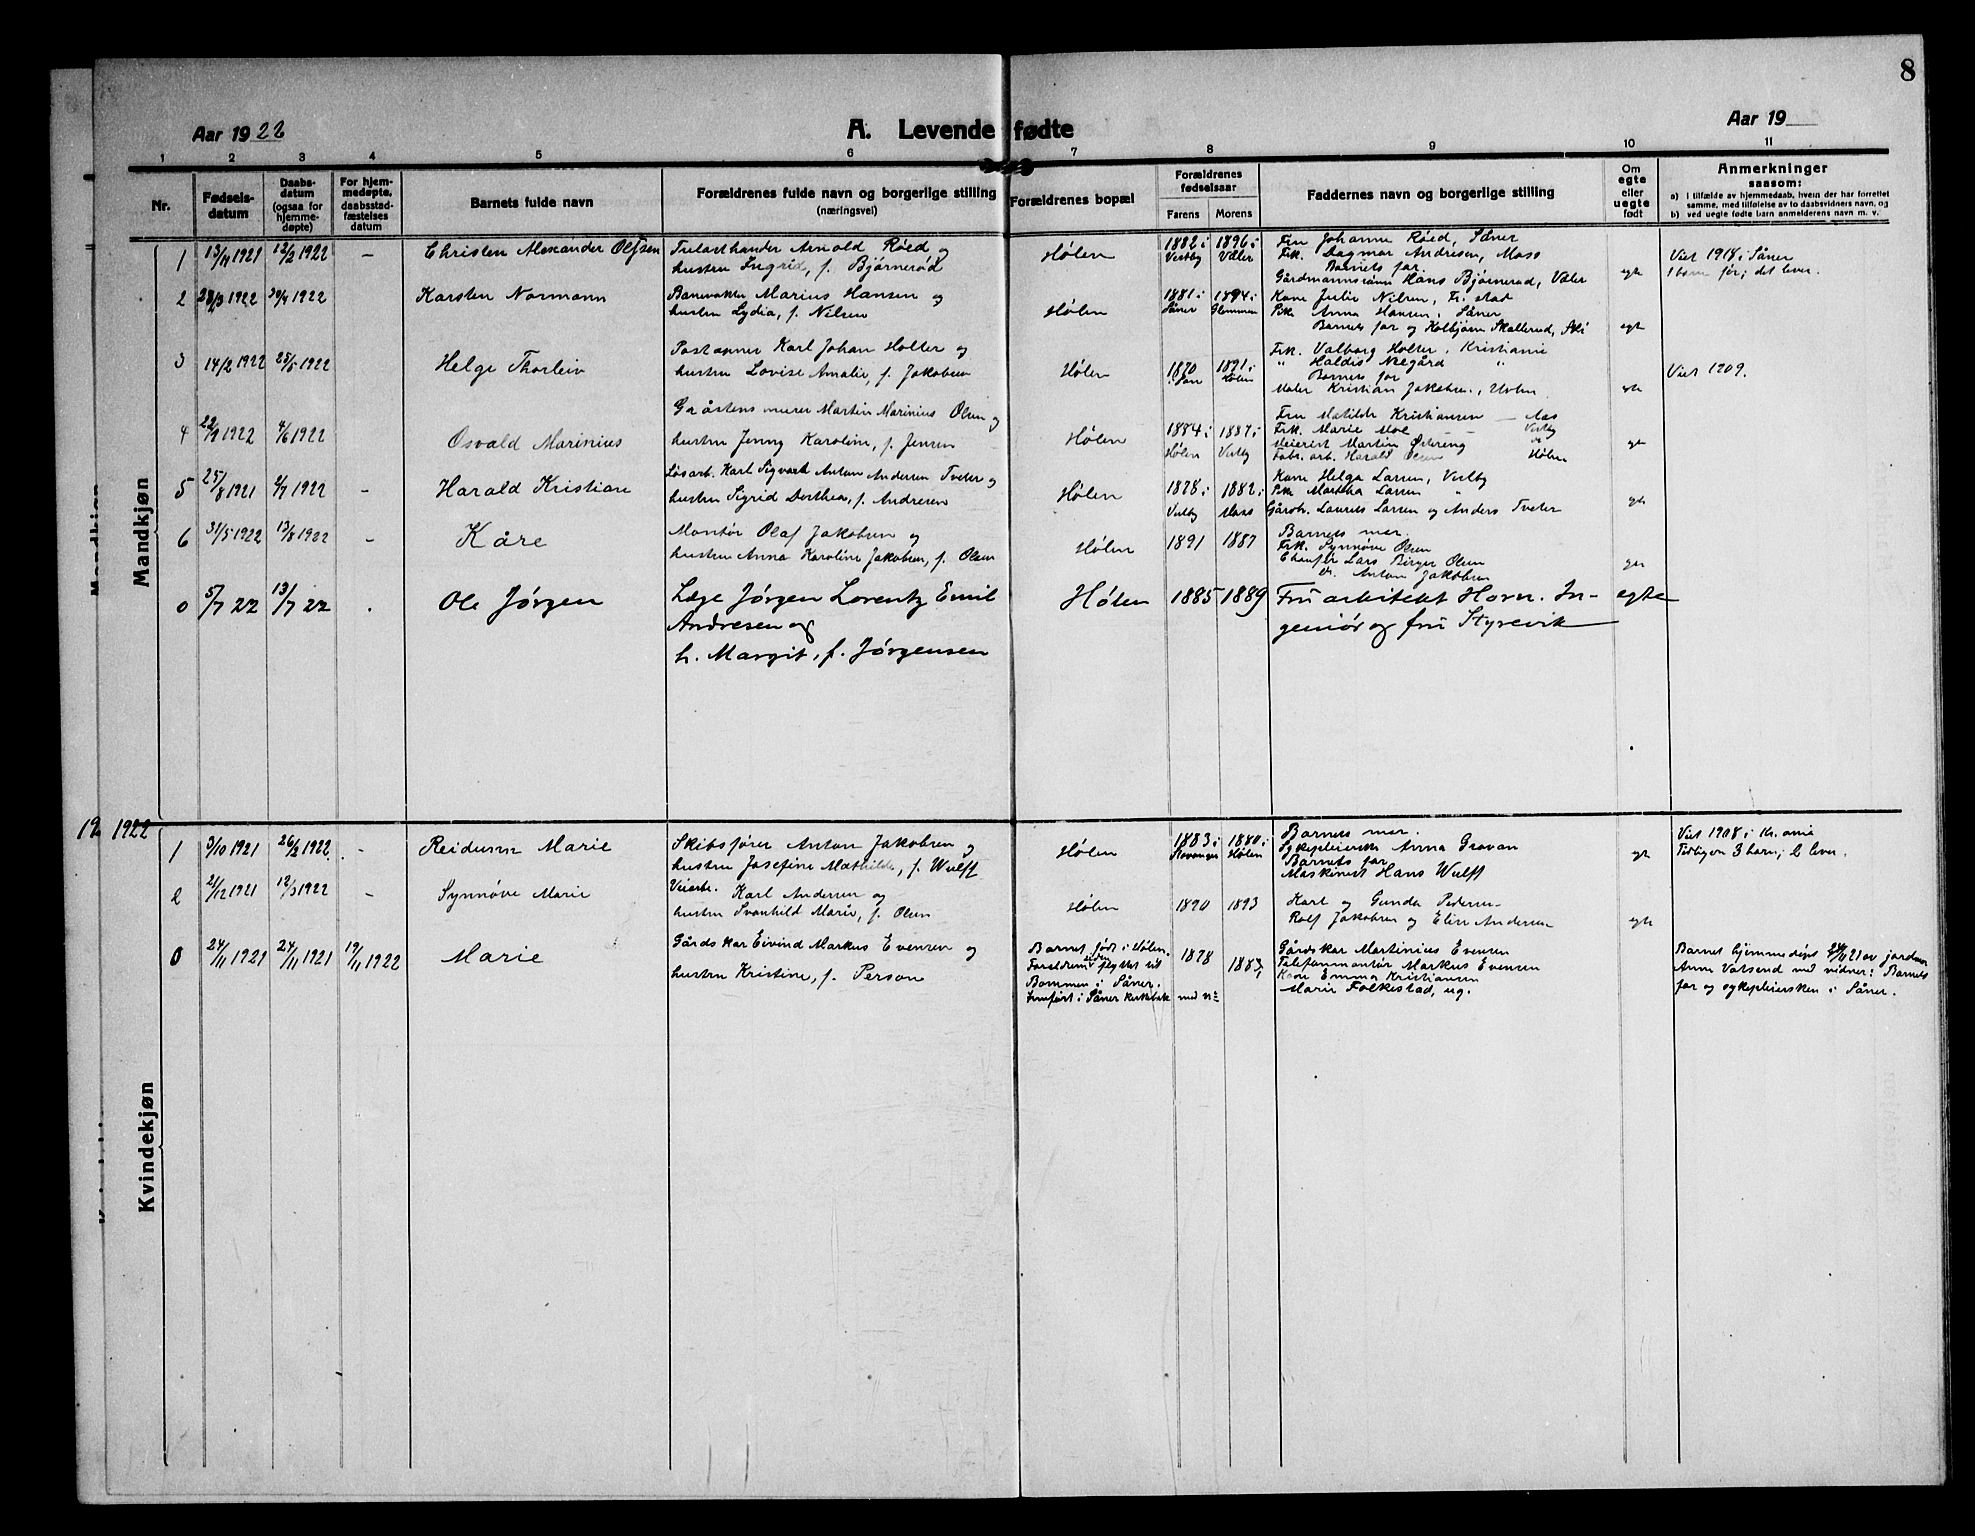 8
Aar 1922
A. Levende fødte
Aar 19
1 2 3 4 5 6 7 8 9 10 11
Nr.
Fødselsdatum
Daabsdatum (ogsaa for hjemmedøpte)
For hjemmedøpte, daabsstadfæstelses datum
Barnets fulde navn
Forældrenes fulde navn og borgerlige stilling
(næringsvei)
Forældrenes bopæl
Forældrenes fødselsaar
Farens Morens
Faddernes navn og borgerlige stilling
Om egte eller uegte født
Anmerkninger
saasom:
a) i tilfælde av hjemmedaab, hveun der har forrettet
samme, med tilføielse av to daabsvidners navn, og
b) ved uegte fødte barn anmelderens navn m. v.
Mandkjøn
1 13/11 1921 12/2 1922 – Christen Alexander Trelasthander Arnold Røed og
hustru Ingrid, f. Bjørnerød
Hølen
1882 i Vestby 1896 i Våler
Fru Johanne Røed, Såner
Frk. Dagmar Andresen, Moss
Barnets far
Gårdmannssønn Hans Bjørnerød, Våler
egte
Viet 1918 i Såner
1 barn før; det lever.
2 /3 1922 30/4 1922 Karsten Normann Banevokter Marius Hansen og
hustru Lydia, f. Nilsen
Hølen
1881 i Såner 1894 i Glemmen
Kone Julie Nilsen, Fr.stad
Pike Anna Hansen, Såner
Barnets far og Kolbjørn Skallerud, Ski
egt
3 14/2 1922 25/5 1922 Helge Thorleiv Postaapner Karl Johan Holter og
hustru Lovise Amalie, f. Jakobsen
Hølen
1870 1891 i Hølen
Frk. Valborg Holter, Kristiania
" Haldis Nægård "
Barnets far
Maler Kristian Jakobsen, Hølen
egte
Viet 1909.
4 1922 4/6 1922 Osvald Marinius Gråstensmurer Martin Marinius Olsen og
hustru Jenny Karoline, f. Jensen
Hølen
1884 i Hølen 1887 i Vestby
Fru Matilde Kristiansen – Aas
Frk. Marie Moe – Vestby
Meierist Martin Østreng
Fabr. arb. Harald Olsen Hølen
egt
5 25/8 1921 2/7 1922 – Harald Kristian Løsarb. Karl Sigvart Anton Andersen Tveter og
hustru Sigrid Dorthea, f. Andresen
Hølen
1878 i Vestby 1882 i Moss
Kone Helga Larsen, Vestby
Pike Martha Larsen "
Gårdbr. Laurits Larsen og Anders Tveter
egte
6 31/5 1922 13/8 1922 – Kåre Montør Olaf Jakobsen og
hustru Anna Karoline Jakobsen, f. Olsen
Hølen
1891 1887
Barnets mor.
Frk. Synnøve Olsen
Chauffør Lars Birger Olsen
Anton Jakobsen
0 5/7 22 13/7 22 . Ole Jørgen Læge Jørgen Lorentz Emil
Andresen og
h. Margit, f. Jørgensen
Hølen
1885 1889
Fru arkitekt Horn. In-
geniør og fru Styrevik
egte
1922
Kvindekjøn
1 3/10 1921 26/2 1922 – Reidunn Marie Skibsfører Anton Jakobsen og
hustru Josefine Mathilde, f. Wulff
Hølen
1883 i Stavanger 1880 i Hølen
Barnets mor.
Sykepleierske Anna Gravan
Barnets far
Maskinist Hans Wulff
egte
Viet 1908 i Kr.ania
Tidligere 3 barn; 2 lever.
2 21/12 1921 12/3 1922 – Synnøve Marie Veiarb. Karl Andersen og
hustru Svanhild Marie, f. Olsen
Hølen
1890 1893
Karl og Gunda Pedersen
Rolf Jakobsen og Elise Andersen
egte
0 24/11 1921 24/11 1921 19/11 1922 Marie Gårdskar Eivind Markus Evensen og
hustru Kristine, f. Person
Barnet født i Hølen.
Foreldrene siden flyttet til
Bommen i Såner.
Innført i Såner kirkebok med nr
1878 1883
Gårdskar Martinius Evensen
Telefonmontør Markus Evensen
Kone Emma Kristiansen
Marie Folkestad, ug.
Barnet hjemmedøpt 24/11 21 av jordmor
Anna Vatsend med vidner: Barnets
far og sykepleiersken i Såner.